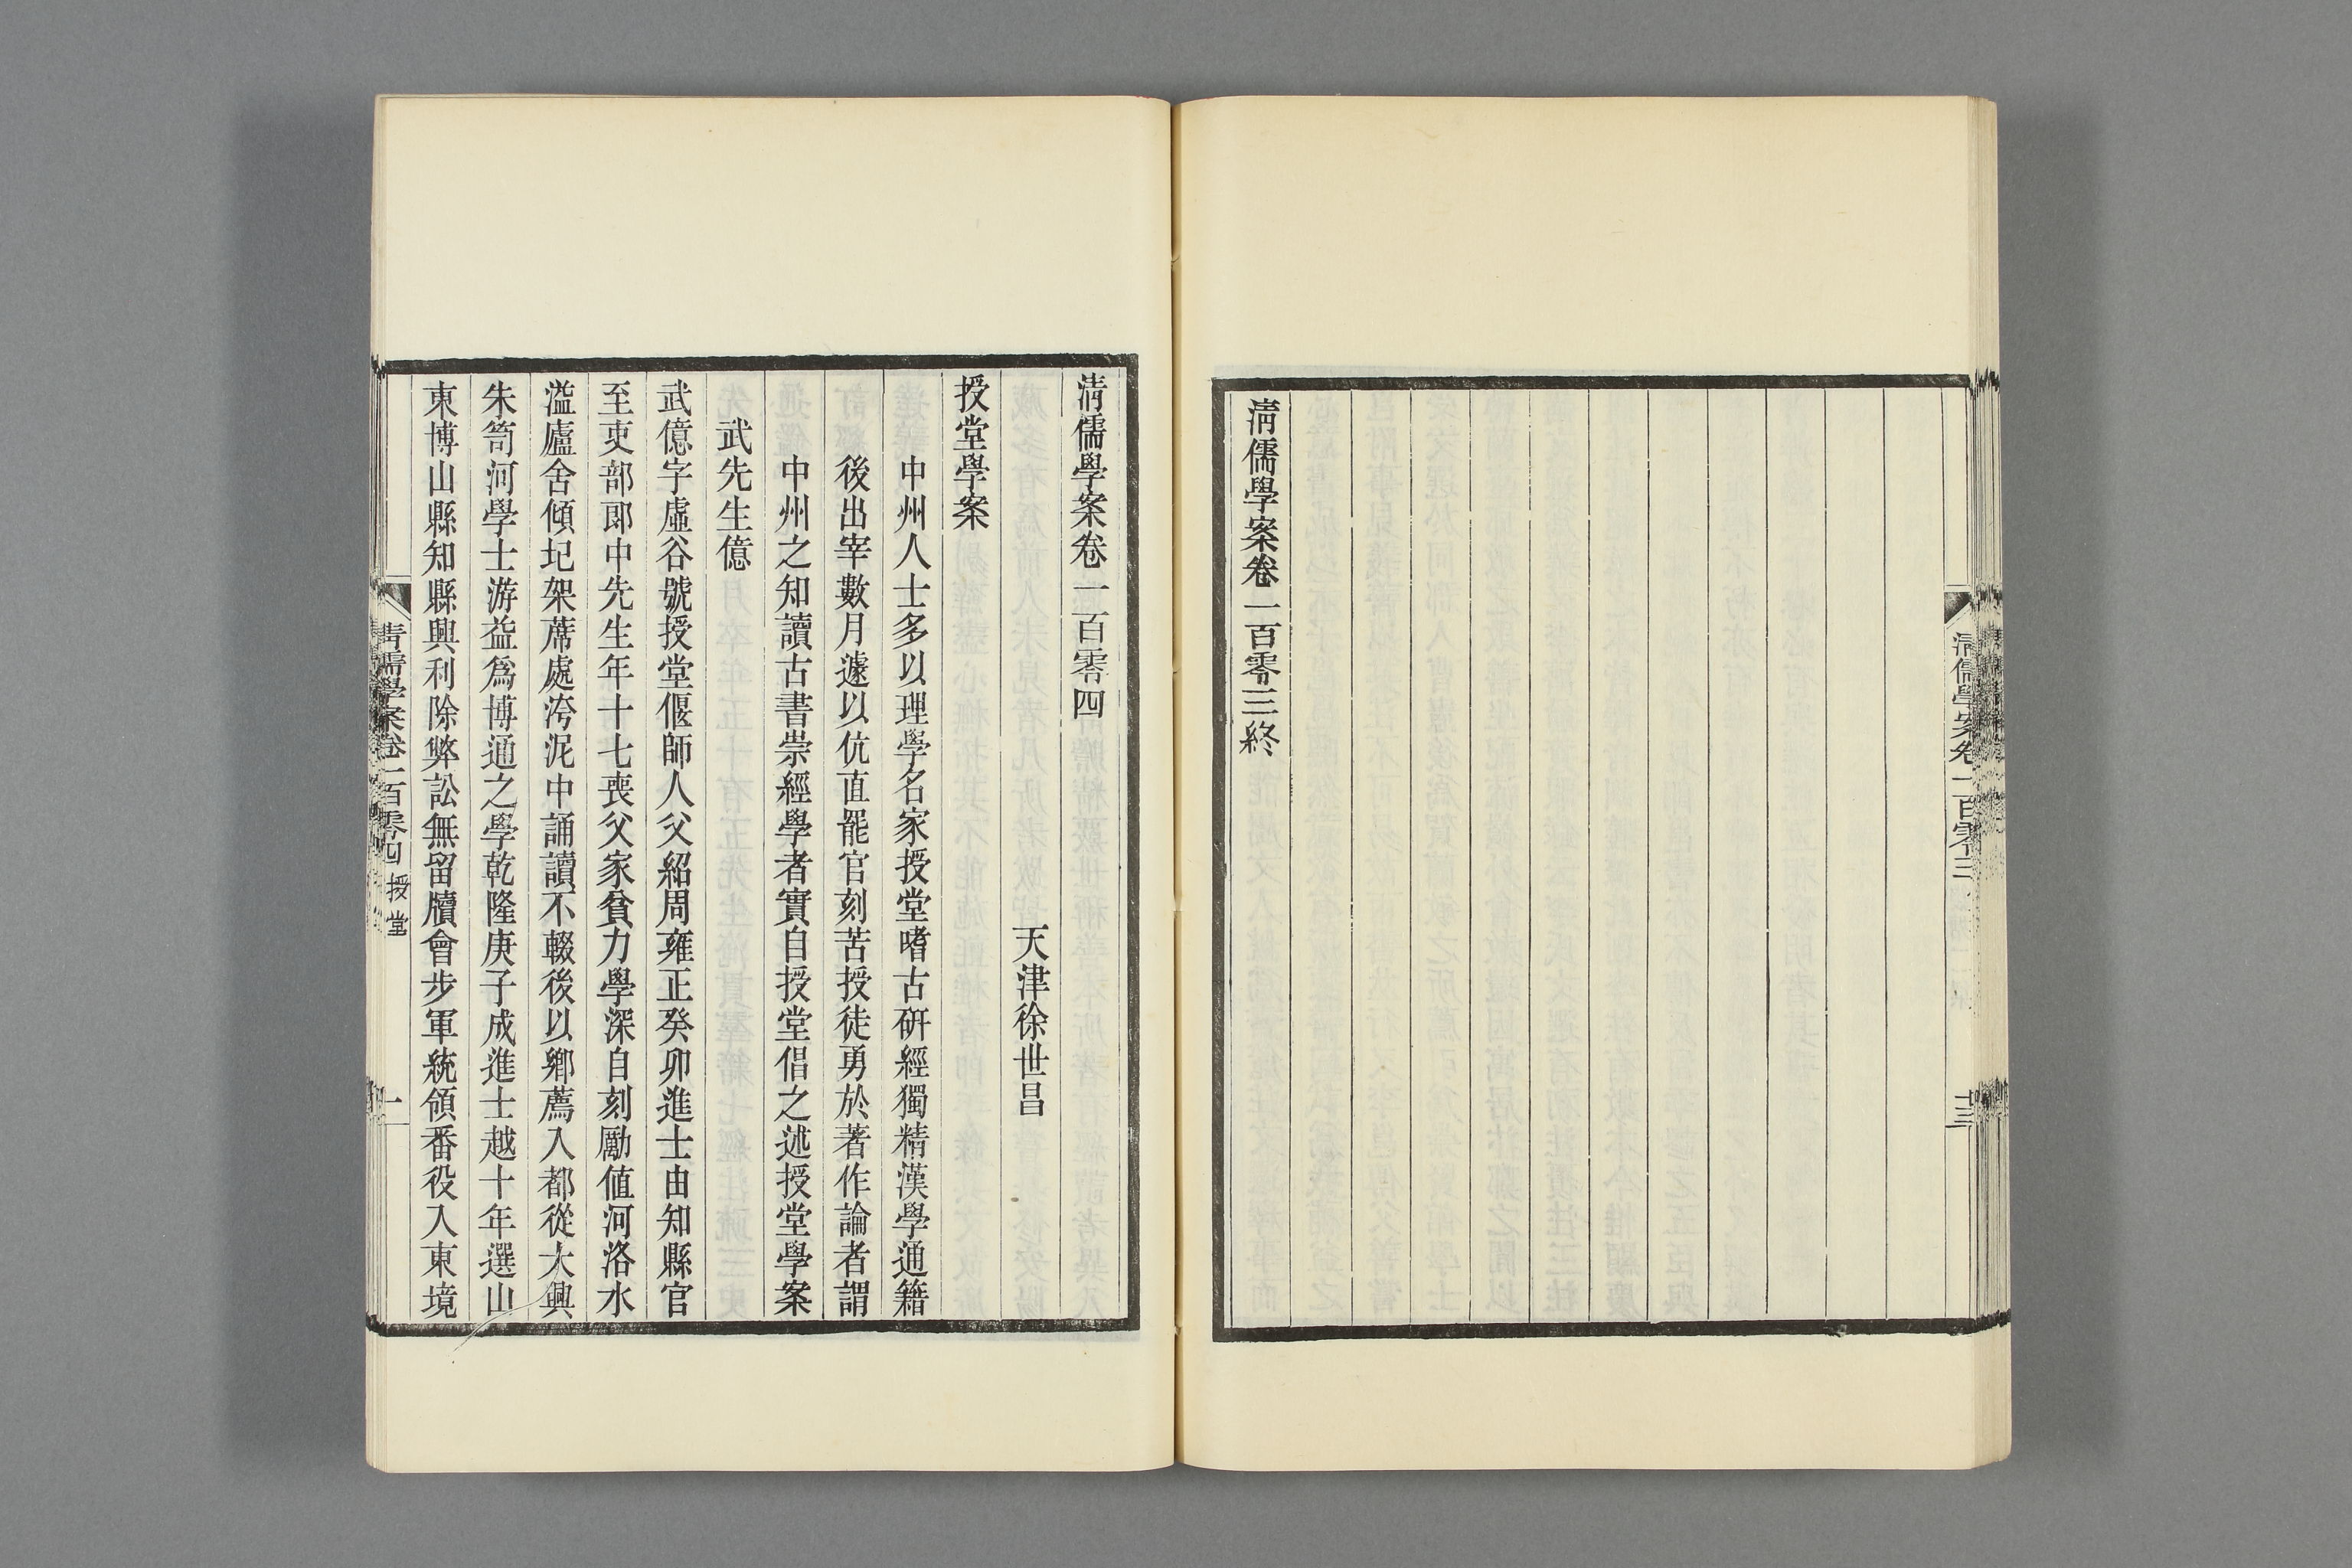 清儒學案卷一百零三
十三
清儒學案卷一百零三終
清儒學案卷一百零四
天津徐世昌
授堂學案
中州人士多以理學名家授堂嗜古研經獨精漢學通籍
後出宰數月遽以伉直罷官刻苦授徒勇於著作論者謂
中州之知讀古書崇經學者實自授堂倡之述授堂學案
武先生億
武億字虛谷號授堂偃師人父紹周雍正癸卯進士由知縣官
至吏部郎中先生年十七喪父家貧力學深自刻勵值河洛水
溢廬舍傾圮架蓆處洿泥中誦讀不輟後以鄉薦入都從大興
朱笥河學士游益為博通之學乾隆庚子成進士越十年選山
東博山縣知縣興利除弊訟無留牘會步軍統領番役入東境
清儒學案卷一百零四 授堂
一